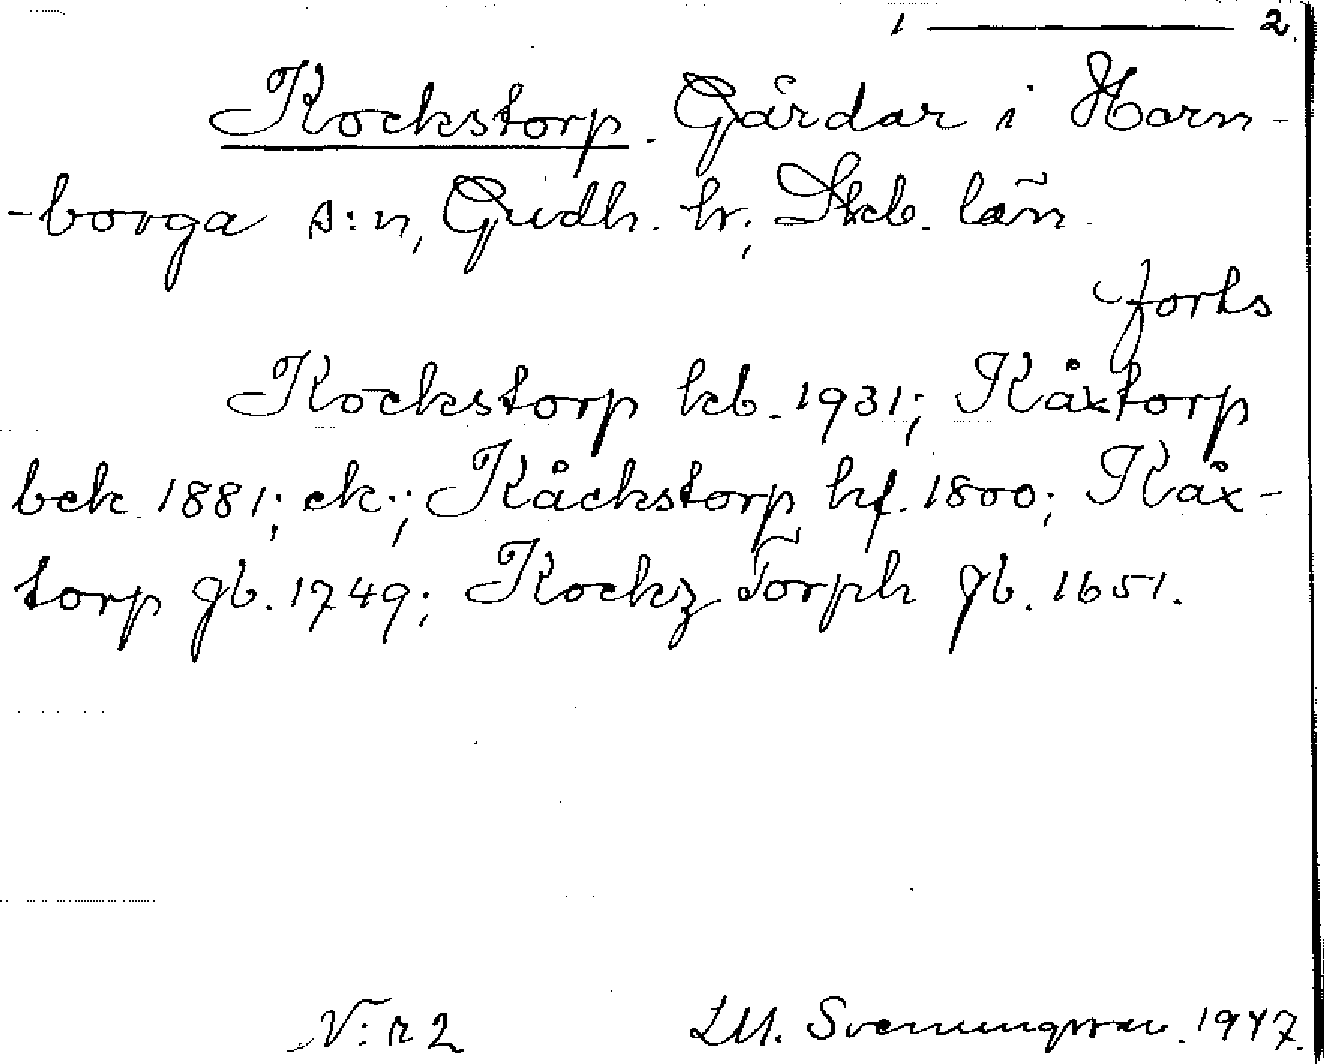 1 ——— 2.
Kockstorp. Gårdar i Horn-
-borga s:n, Gudh. hr; Skb. län.
forts
Kockstorp kb. 1931; Kåxtorp
bek 1881; ek; Kåckstorp hf. 1800; Kåx-
torp gb. 1749; Kockz Torph gb. 1651.
N:r 2 I.M. Svenungsson. 1947.